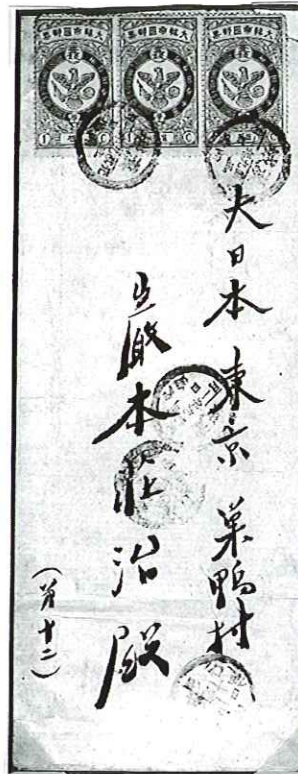 大韓帝國郵票
大韓帝國郵票
大韓帝國郵票
大日本東京巣鴨村
巌本莊治殿
(第十二)